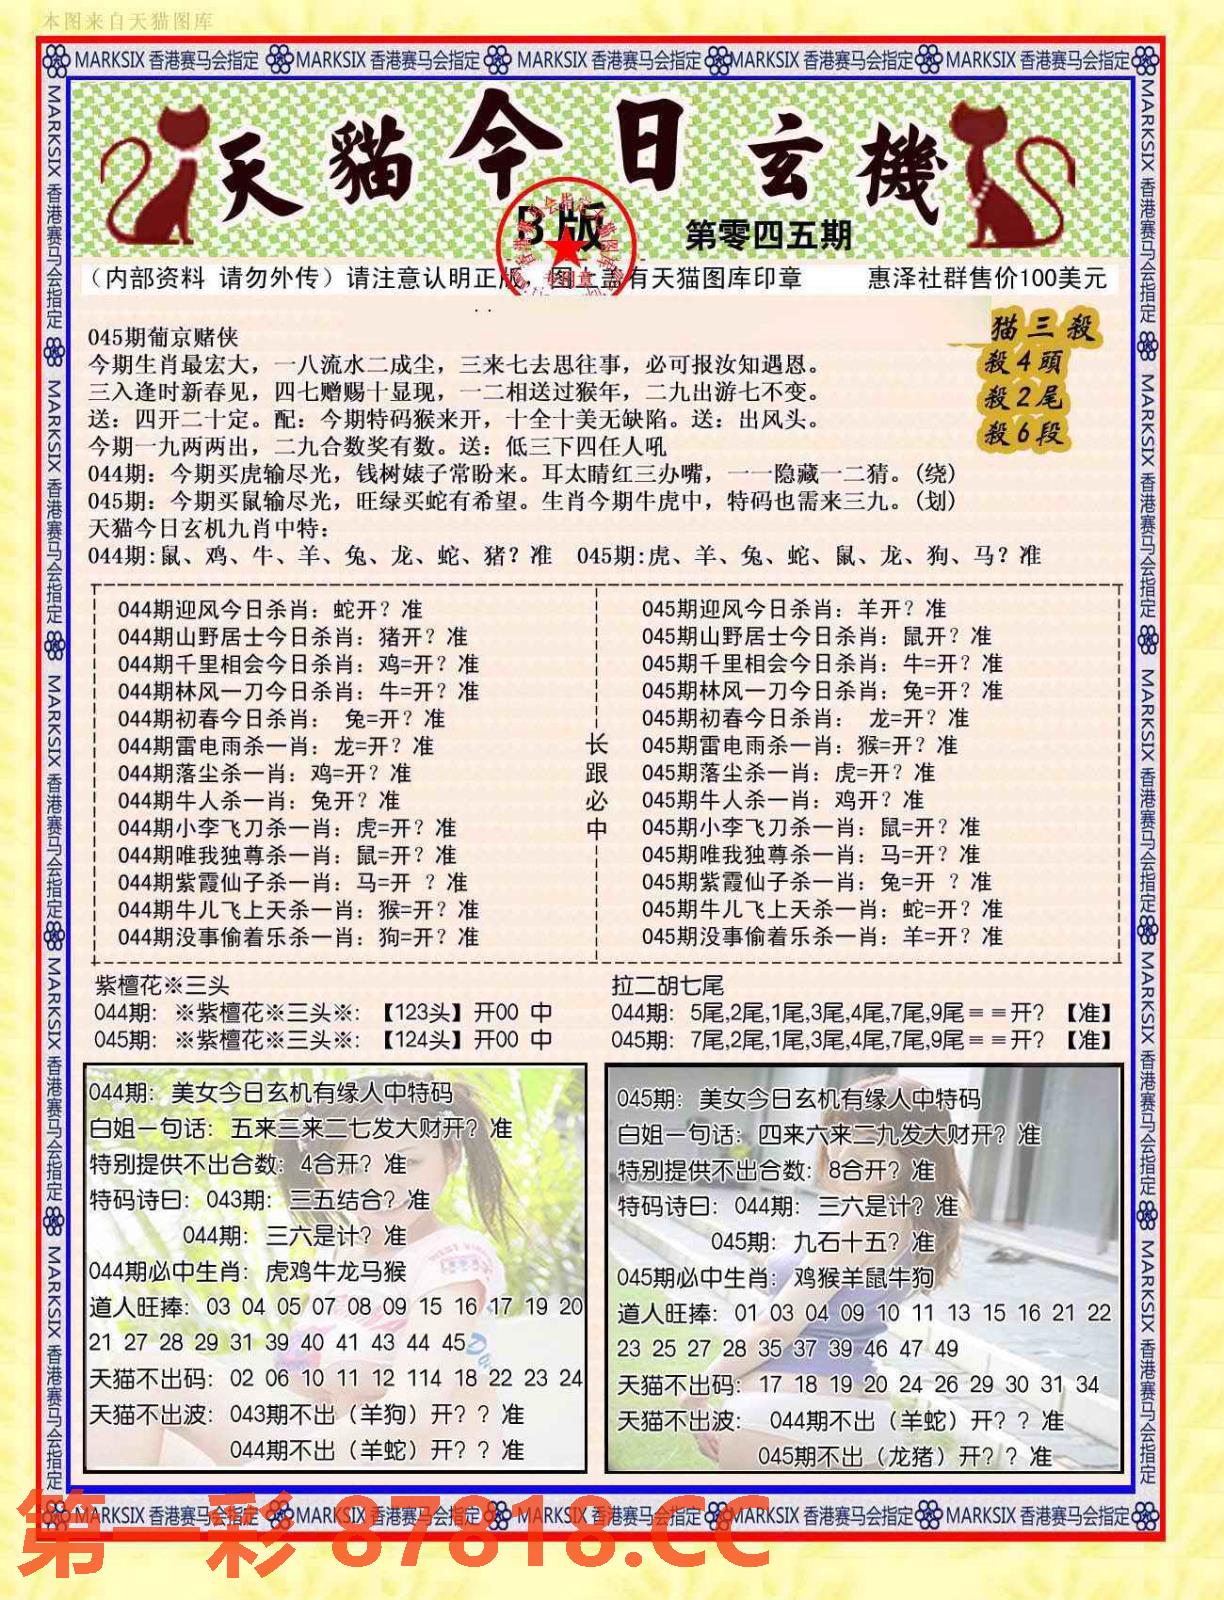 本图来自天猫图库
MARKSIX 香港赛马会指定 MARKSIX 香港赛马会指定 MARKSIX 香港赛马会指定 MARKSIX 香港赛马会指定 MARKSIX 香港赛马会指定
天貓今日玄機
B版 第零四五期
（内部资料 请勿外传）请注意认明正版 图上盖有天猫图库印章 惠泽社群售价100美元
猫三殺
殺4頭
殺2尾
殺6段
045期葡京赌侠
今期生肖最宏大，一八流水二成尘，三来七去思往事，必可报汝知遇恩。
三入逢时新春见，四七赠赐十显现，一二相送过猴年，二九出游七不变。
送：四开二十定。配：今期特码猴来开，十全十美无缺陷。送：出风头。
今期一九两两出，二九合数奖有数。送：低三下四任人吼
044期：今期买虎输尽光，钱树婊子常盼来。耳太晴红三办嘴，一一隐藏一二猜。(绕)
045期：今期买鼠输尽光，旺绿买蛇有希望。生肖今期牛虎中，特码也需来三九。(划)
天猫今日玄机九肖中特：
044期:鼠、鸡、牛、羊、兔、龙、蛇、猪？准 045期:虎、羊、兔、蛇、鼠、龙、狗、马？准
044期迎风今日杀肖：蛇开？准
044期山野居士今日杀肖：猪开？准
044期千里相会今日杀肖：鸡=开？准
044期林风一刀今日杀肖：牛=开？准
044期初春今日杀肖： 兔=开？准
044期雷电雨杀一肖：龙=开？准
044期落尘杀一肖：鸡=开？准
044期牛人杀一肖：兔开？准
044期小李飞刀杀一肖：虎=开？准
044期唯我独尊杀一肖：鼠=开？准
044期紫霞仙子杀一肖：马=开 ？准
044期牛儿飞上天杀一肖：猴=开？准
044期没事偷着乐杀一肖：狗=开？准
长跟必中
045期迎风今日杀肖：羊开？准
045期山野居士今日杀肖：鼠开？准
045期千里相会今日杀肖：牛=开？准
045期林风一刀今日杀肖：兔=开？准
045期初春今日杀肖： 龙=开？准
045期雷电雨杀一肖：猴=开？准
045期落尘杀一肖：虎=开？准
045期牛人杀一肖：鸡开？准
045期小李飞刀杀一肖：鼠=开？准
045期唯我独尊杀一肖：马=开？准
045期紫霞仙子杀一肖：兔=开 ？准
045期牛儿飞上天杀一肖：蛇=开？准
045期没事偷着乐杀一肖：羊=开？准
紫檀花※三头
044期：※紫檀花※三头※：【123头】开00 中
045期：※紫檀花※三头※：【124头】开00 中
拉二胡七尾
044期：5尾,2尾,1尾,3尾,4尾,7尾,9尾＝＝开？【准】
045期：7尾,2尾,1尾,3尾,4尾,7尾,9尾＝＝开？【准】
044期：美女今日玄机有缘人中特码
白姐一句话：五来三来二七发大财开？准
特别提供不出合数：4合开？准
特码诗曰：043期：三五结合？准
044期：三六是计？准
044期必中生肖：虎鸡牛龙马猴
道人旺捧：03 04 05 07 08 09 15 16 17 19 20
21 27 28 29 31 39 40 41 43 44 45
天猫不出码：02 06 10 11 12 114 18 22 23 24
天猫不出波：043期不出（羊狗）开？？准
044期不出（羊蛇）开？？准
045期：美女今日玄机有缘人中特码
白姐一句话：四来六来二九发大财开？准
特别提供不出合数：8合开？准
特码诗曰：044期：三六是计？准
045期：九石十五？准
045期必中生肖：鸡猴羊鼠牛狗
道人旺捧：01 03 04 09 10 11 13 15 16 21 22
23 25 27 28 35 37 39 46 47 49
天猫不出码：17 18 19 20 24 26 29 30 31 34
天猫不出波： 044期不出（羊蛇）开？？准
045期不出（龙猪）开？？准
MARKSIX 香港赛马会指定 MARKSIX 香港赛马会指定 MARKSIX 香港赛马会指定 MARKSIX 香港赛马会指定 MARKSIX 香港赛马会指定
第一彩 87818.CC
MARKSIX 香港赛马会指定 MARKSIX 香港赛马会指定 MARKSIX 香港赛马会指定 MARKSIX 香港赛马会指定 MARKSIX 香港赛马会指定
MARKSIX 香港赛马会指定 MARKSIX 香港赛马会指定 MARKSIX 香港赛马会指定 MARKSIX 香港赛马会指定 MARKSIX 香港赛马会指定